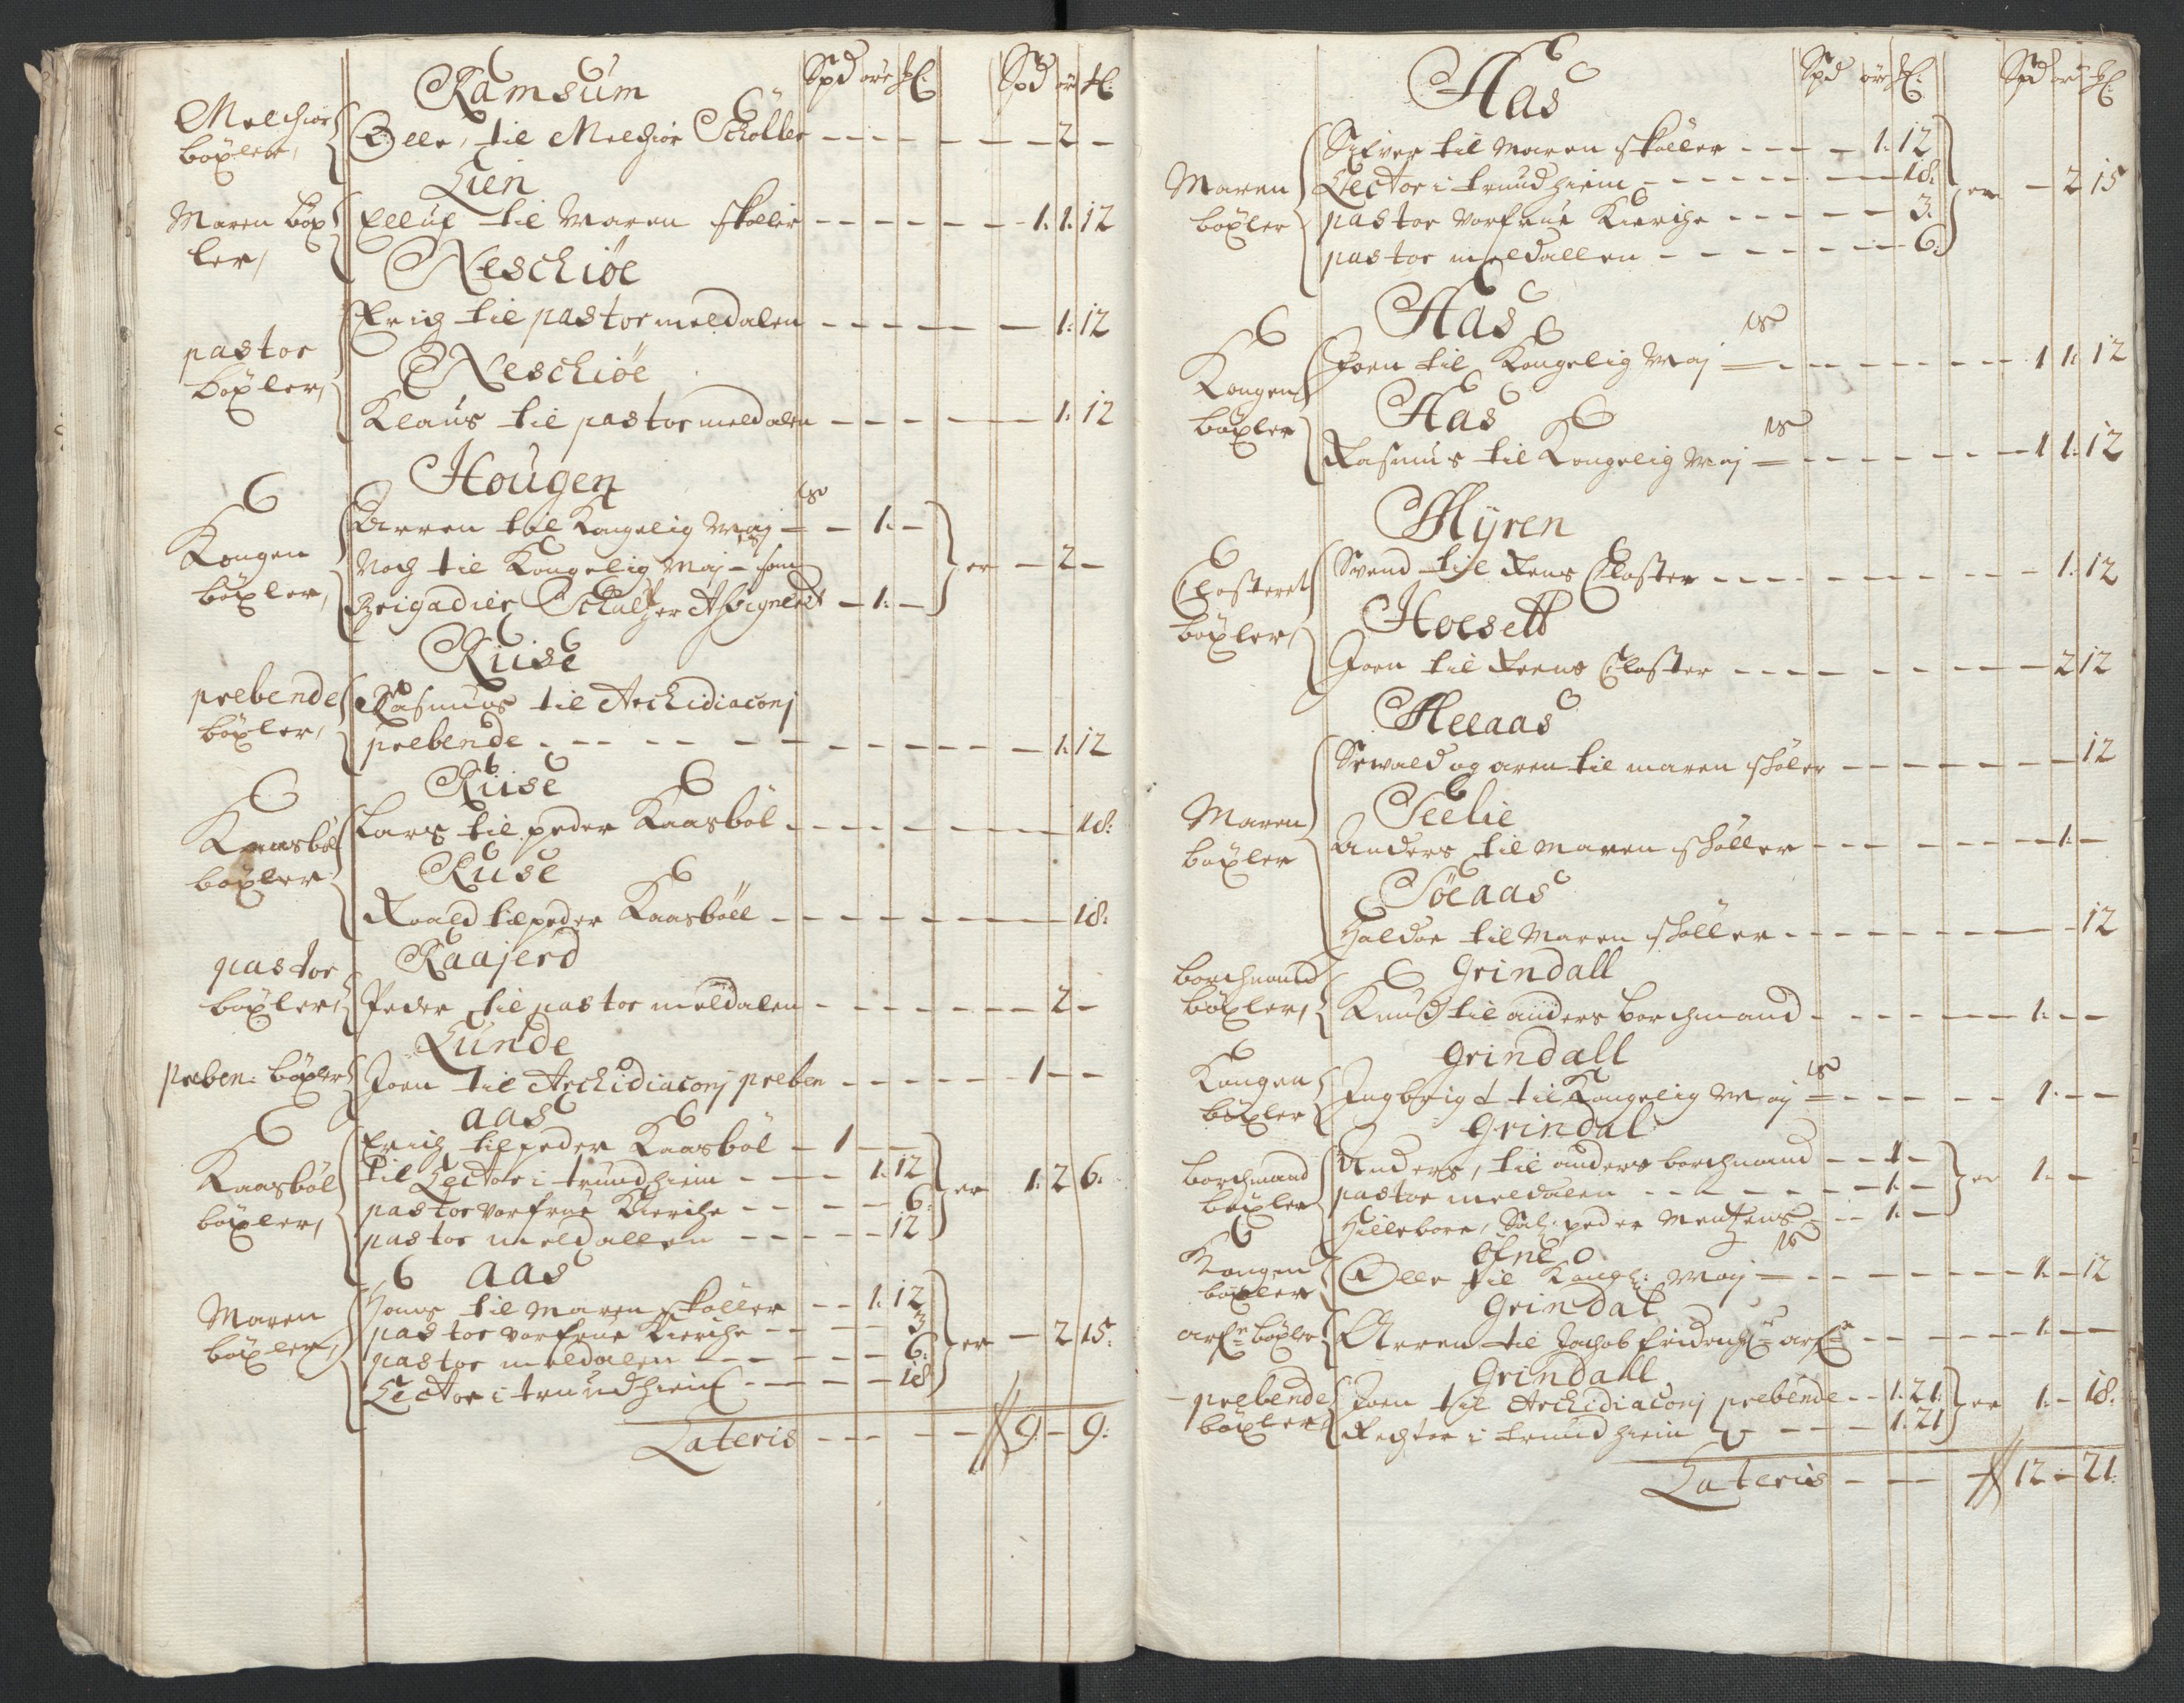 Ramsum Spd øre ℔: Spd ør ℔:
Melchior bøxler, Olle, til Melchior Schøller - - - - 2 -
Lien
Maren bøxler, Elluf til Maren skøller - - - - 1: 1: 12
Neschiøe
Erich til pastor meldalen - - - - 1: 12
pastor bøxler,
Neschiøe
Klaus til pastor meldalen - - - - 1: 12
Hougen
Kongen bøxler,
Arren til Kongelig May - - 1: -
Noch til Kongelig May - som
Brigadier Schultzer Assignert - 1: - er - 2 -
Riise
prebende bøxler, Rasmus til Archidiaconj
prebende - - - - 1: 12
Riise
Kaasbøl bøxler
Lars til peder Kaasbøl - - - - 18:
Ruse
Roald til peder Kaasbøll - - - - 18:
Raajerd
pastor bøxler, Peder til pastor meldalen - - - - 2 -
Lunde
preben: bøxler Joen til Archidiaconj preben - - - - 1 - -
aas
Kaasbøl bøxler,
Erich til peder Kaasbøl - 1 - -
til Lector i trundhiem - - - 1: 12
pastor Vorfrue Kierche - - - - 6:
pastor meldallen - - - - 12 er 1: 2 6:
aas
Maren bøxler,
Hans til Maren skøller - - 1: 12
pastor Vorfrue Kierche - - - 3
pastor meldalen - - - - 6:
Lector i trundhiem - - - - 18 er - 2 15:
Lateris - - - - 9: - 9:
Aas Spd øre ℔: Spd ør ℔:
Maren bøxler
Sifver til Maren skøller - - - - 1: 12
Lector i trundhiem - - - - 18:
pastor Vorfrue Kierche - - - - 3:
pastor meldallen - - - - 6: er - 2 15
Aas
Kongen bøxler
Joen til Kongelig May - - - - 1 1: 12
Aas
Rasmus til Kongelig May - - - - 1 1: 12
Myren
Closteret bøxler,
Svend til Rens Closter - - - - 1: 12
Hoesett
Joen til Reens Closter - - - - 2 12
Sewald og aren til maren skøler - - - - 12
Maren bøxler
Seelie
Anders til Maren skøller - - - - 1: -
Søeaas
Haldor til Maren skøller - - - - 12
Grindall
borchmand bøxler, Knud til anders borchmand - - - - 1: - -
Grindall
Kongen bøxler Ingbrigt til Kongelig May - - - - 1: - -
Grindal
borchmand bøxler
Anders, til anders borchmand - - 1 -
pastor meldalen - - - - 1: -
Hilleborr, Sal: peder Mentzens - - 1: - er 1: -
Kongen bøxler Olle til Kongl: May - - - - 1: - 12
Grindal
arf: bøxler Arren til Jachob fridrichs arf - - - - 1: - -
Grindall
prebende bøxler
Joen til Archidiaconj prebende - - 1: 21:
Rechtor i trundhiem - - - 1: 21 er 1: - 18:
Lateris - - - - 12 - 21: